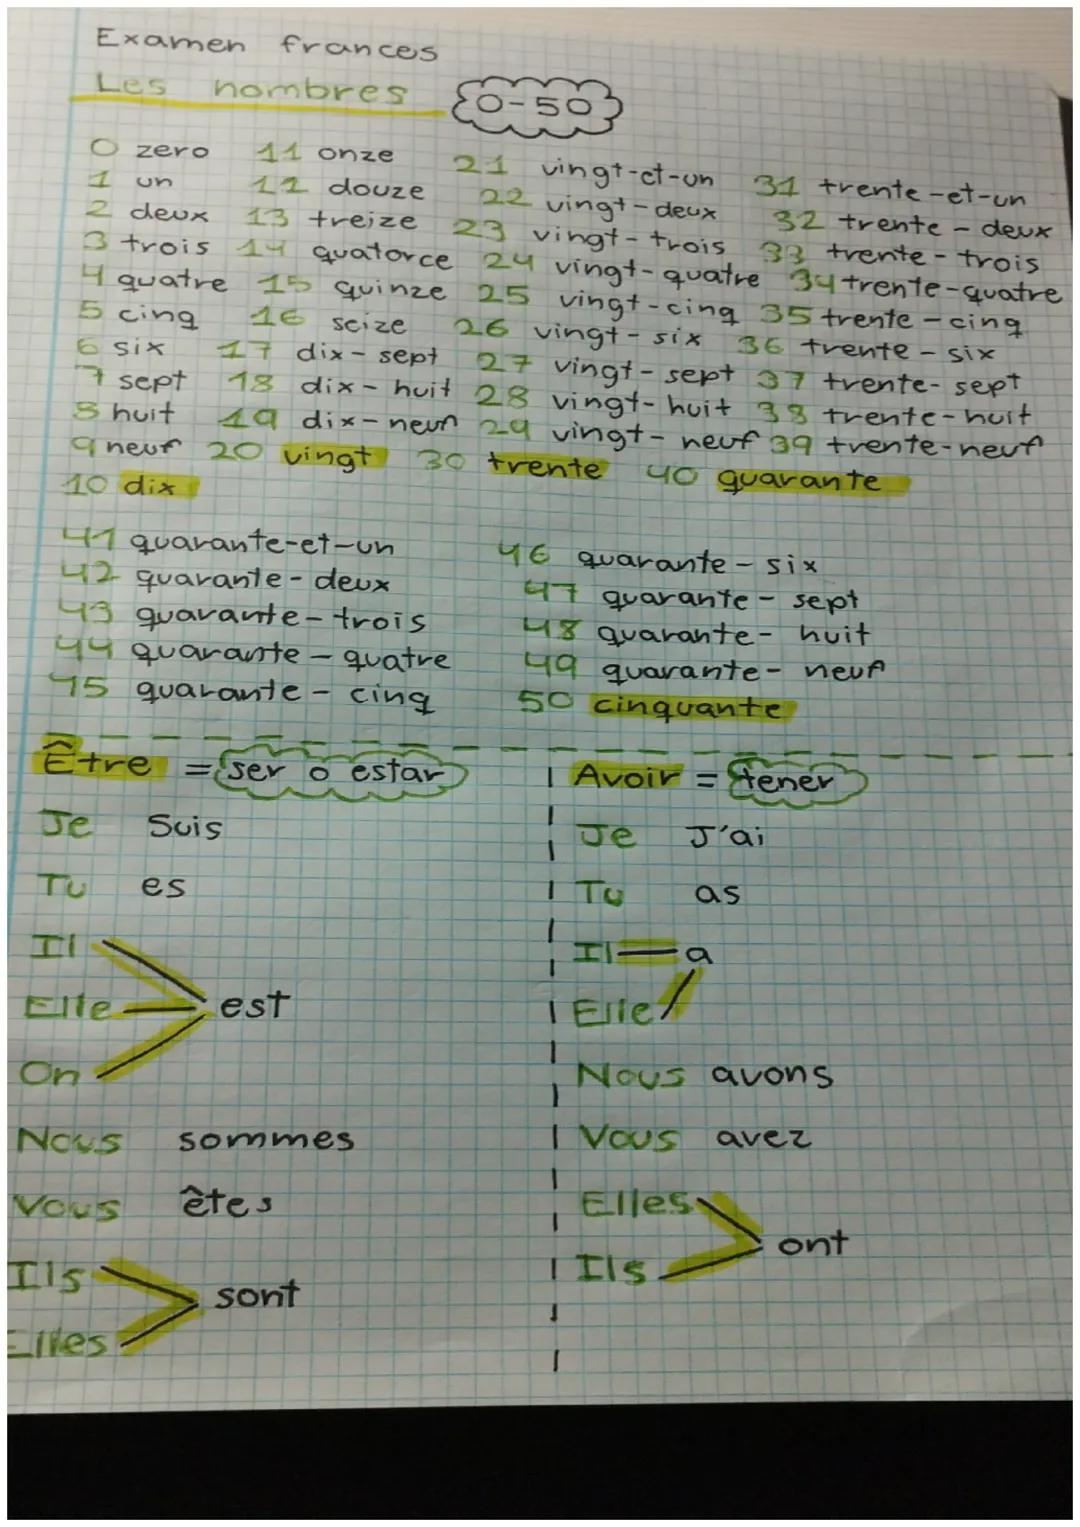 Examen frances
Les nombres 0-50
0 zero 11 onze 21 vingt-et-un 31 trente-et-un
1 un 12 douze 22 vingt-deux 32 trente-deux
2 deux 13 treize 23 vingt-trois 33 trente-trois
3 trois 14 quatorce 24 vingt-quatre 34 trente-quatre
4 quatre 15 quinze 25 vingt-cinq 35 trente-cinq
5 cinq 16 seize 26 vingt-six 36 trente-six
6 six 17 dix-sept 27 vingt-sept 37 trente-sept
7 sept 18 dix-huit 28 vingt-huit 38 trente-huit
8 huit 19 dix-neuf 29 vingt-neuf 39 trente-neuf
9 neuf 20 vingt 30 trente 40 quarante
10 dix
41 quarante-et-un 46 quarante-six
42 quarante-deux 47 quarante-sept
43 quarante-trois 48 quarante-huit
44 quarante-quatre 49 quarante-neuf
45 quarante-cinq 50 cinquante
Être = ser o estar
Je Suis
Tu es
Il
Elle est
On
Nous sommes
Vous êtes
Ils
sont
Elles
Avoir = tener
Je J'ai
Tu as
Il a
Elle
Nous avons
Vous avez
Elles
ont
Ils